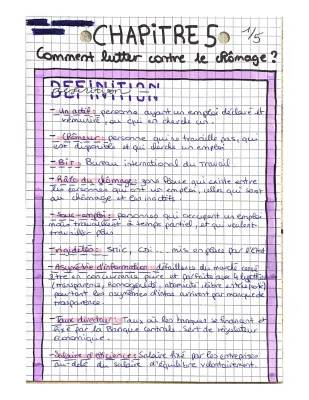 CHAPITRE 5
1/5
Comment lutter contre le chômage ?
DEFINITION
définition
- Un actif : personne ayant un emploi déclaré et
rémunéré, ou qui en cherche un.
- Chômeur : personne qui ne travaille pas, qui
est disponible et qui cherche un emploi
- BIT : Bureau international du Travail
- Halo du chômage : zone floue qui existe entre
les personnes qui ont un emploi, celles qui sont
au chômage et les inactifs.
- Sous-emploi : personnes qui occupent un emploi
mais travaillent à temps partiel, et qui veulent
travailler plus
- rigidités : smic, CDI... mis en place par l'Etat
- Asymétrie d'information : défaillances du marché censé
être à concurrence pure et parfaite aux 4
(transparence, homogénéité, atomicité, libre entrée
pourtant les asymétries d'infos arrivent par manque de
transparence.
- Taux directeur : Taux où les banques se financent et
fixé par la Banque centrale. Sert de régulateur
économique.
- Salaire d'efficience : Salaire fixé par les entreprises
au-delà du salaire d'équilibre volontairement.